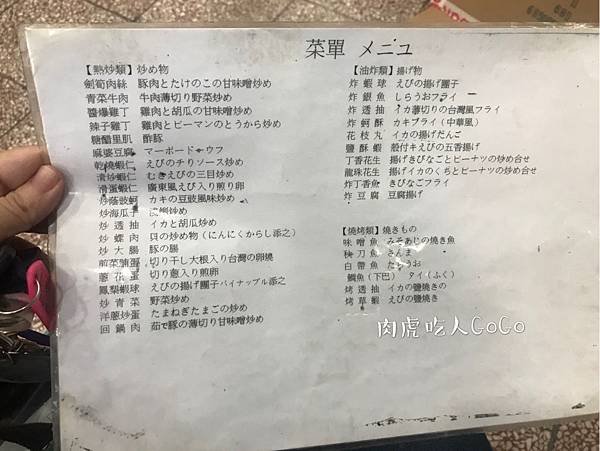 菜單 メニュー
【熱炒類】炒め物
劍筍肉絲 豚肉とたけのこの甘味噌炒め
青菜牛肉 牛肉薄切り野菜炒め
醬爆雞丁 雞肉と胡瓜の甘味噌炒め
辣子雞丁 雞肉とピーマンのとうから炒め
糖醋里肌 酢豚
麻婆豆腐 マーボードーウフ
乾燒蝦仁 えびのチリソース炒め
清炒蝦仁 むきえびの三目炒め
滑蛋蝦仁 廣東風えび入り煎り卵
炒蔭豉蚵 カキの豆豉風味炒め
炒海瓜子
炒透抽 イカと胡瓜炒め
炒螺肉 貝の炒め物(にんにくからし添之)
炒大腸 豚の腸
煎菜脯蛋 切り干し大根入り台灣の卵燒
蔥花蛋 切り蔥入り煎卵
鳳梨蝦球 えびの揚げ團子パイナップル添之
炒青菜 野菜炒め
洋蔥炒蛋 たまねぎたまごの炒め
回鍋肉 茄で豚の薄切り甘味噌炒め
【油炸類】揚げ物
炸蝦球 えびの揚げ團子
炸銀魚 しらうおフライ
炸透抽 イカ薄切りの台灣風フライ
炸蚵酥 カキプライ(中華風)
花枝丸 イカの揚げだんご
鹽酥蝦 殼付キえびの五香揚げ
丁香花生 揚げきびなごとピーナツの炒め合せ
龍珠花生 揚げイカのくちとピーナツの炒め合せ
炸丁香魚 きびなごフライ
炸豆腐 豆腐揚げ
【燒烤類】燒きもの
味噌魚 みそあじの燒き魚
秋刀魚 さんま
白帶魚 たちうお
鯛魚(下巴) タイ(ふく)
烤透抽 イカの鹽燒きの
烤草蝦 えびの鹽燒き
肉虎吃人GoGo